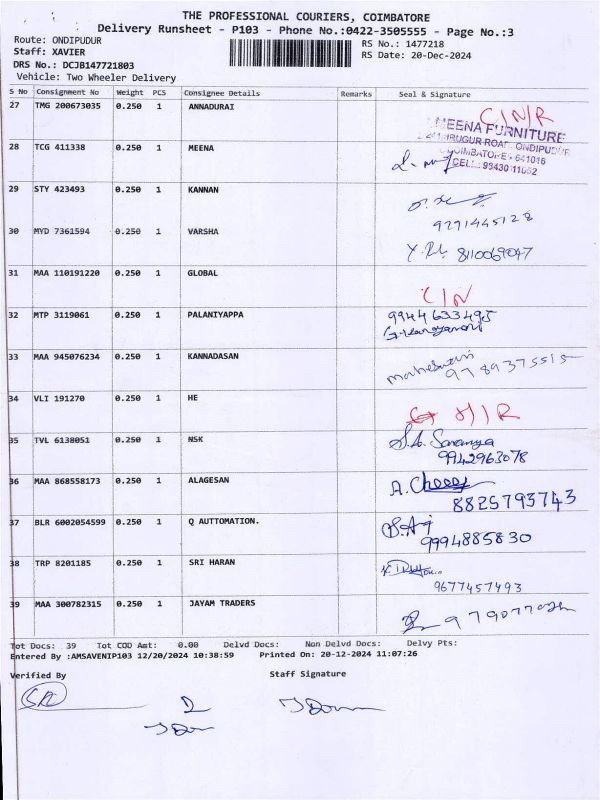 THE PROFESSIONAL COURIERS, COIMBATORE
Delivery Runsheet - P103 - Phone No.:0422-3505555 - Page No.:3
Route: ONDIPUDUR
RS No.: 1477218
Staff: XAVIER
RS Date: 20-Dec-2024
DRS No.: DCJB147721803
Vehicle: Two Wheeler Delivery
S No Consignment No Weight PCS Consignee Details Remarks Seal & Signature
27 TMG 200673035 0.250 1 ANNADURAI C/N/R
MEENA FURNITURE
28 TCG 411338 0.250 1 MEENA
COIMBATORE - 641016
CELL: 99430 11052
29 STY 423493 0.250 1 KANNAN
9271445128
30 MYD 7361594 0.250 1 VARSHA 8110069047
31 MAA 110191220 0.250 1 GLOBAL C/N
32 MTP 3119061 0.250 1 PALANIYAPPA 9944633495
33 MAA 945076234 0.250 1 KANNADASAN 9789375515
34 VLI 191270 0.250 1 HE
35 TVL 6138051 0.250 1 NSK S.A. Saranya
9942963078
36 MAA 868558173 0.250 1 ALAGESAN A.
8825793743
37 BLR 6002054599 0.250 1 Q AUTTOMATION.
9994885830
38 TRP 8201185 0.250 1 SRI HARAN
9677457493
39 MAA 300782315 0.250 1 JAYAM TRADERS
Tot Docs: 39 Tot COD Amt: 0.00 Delvd Docs: Non Delvd Docs: Delvy Pts:
Entered By :AMSAVENIP103 12/20/2024 10:38:59 Printed On: 20-12-2024 11:07:26
Verified By Staff Signature